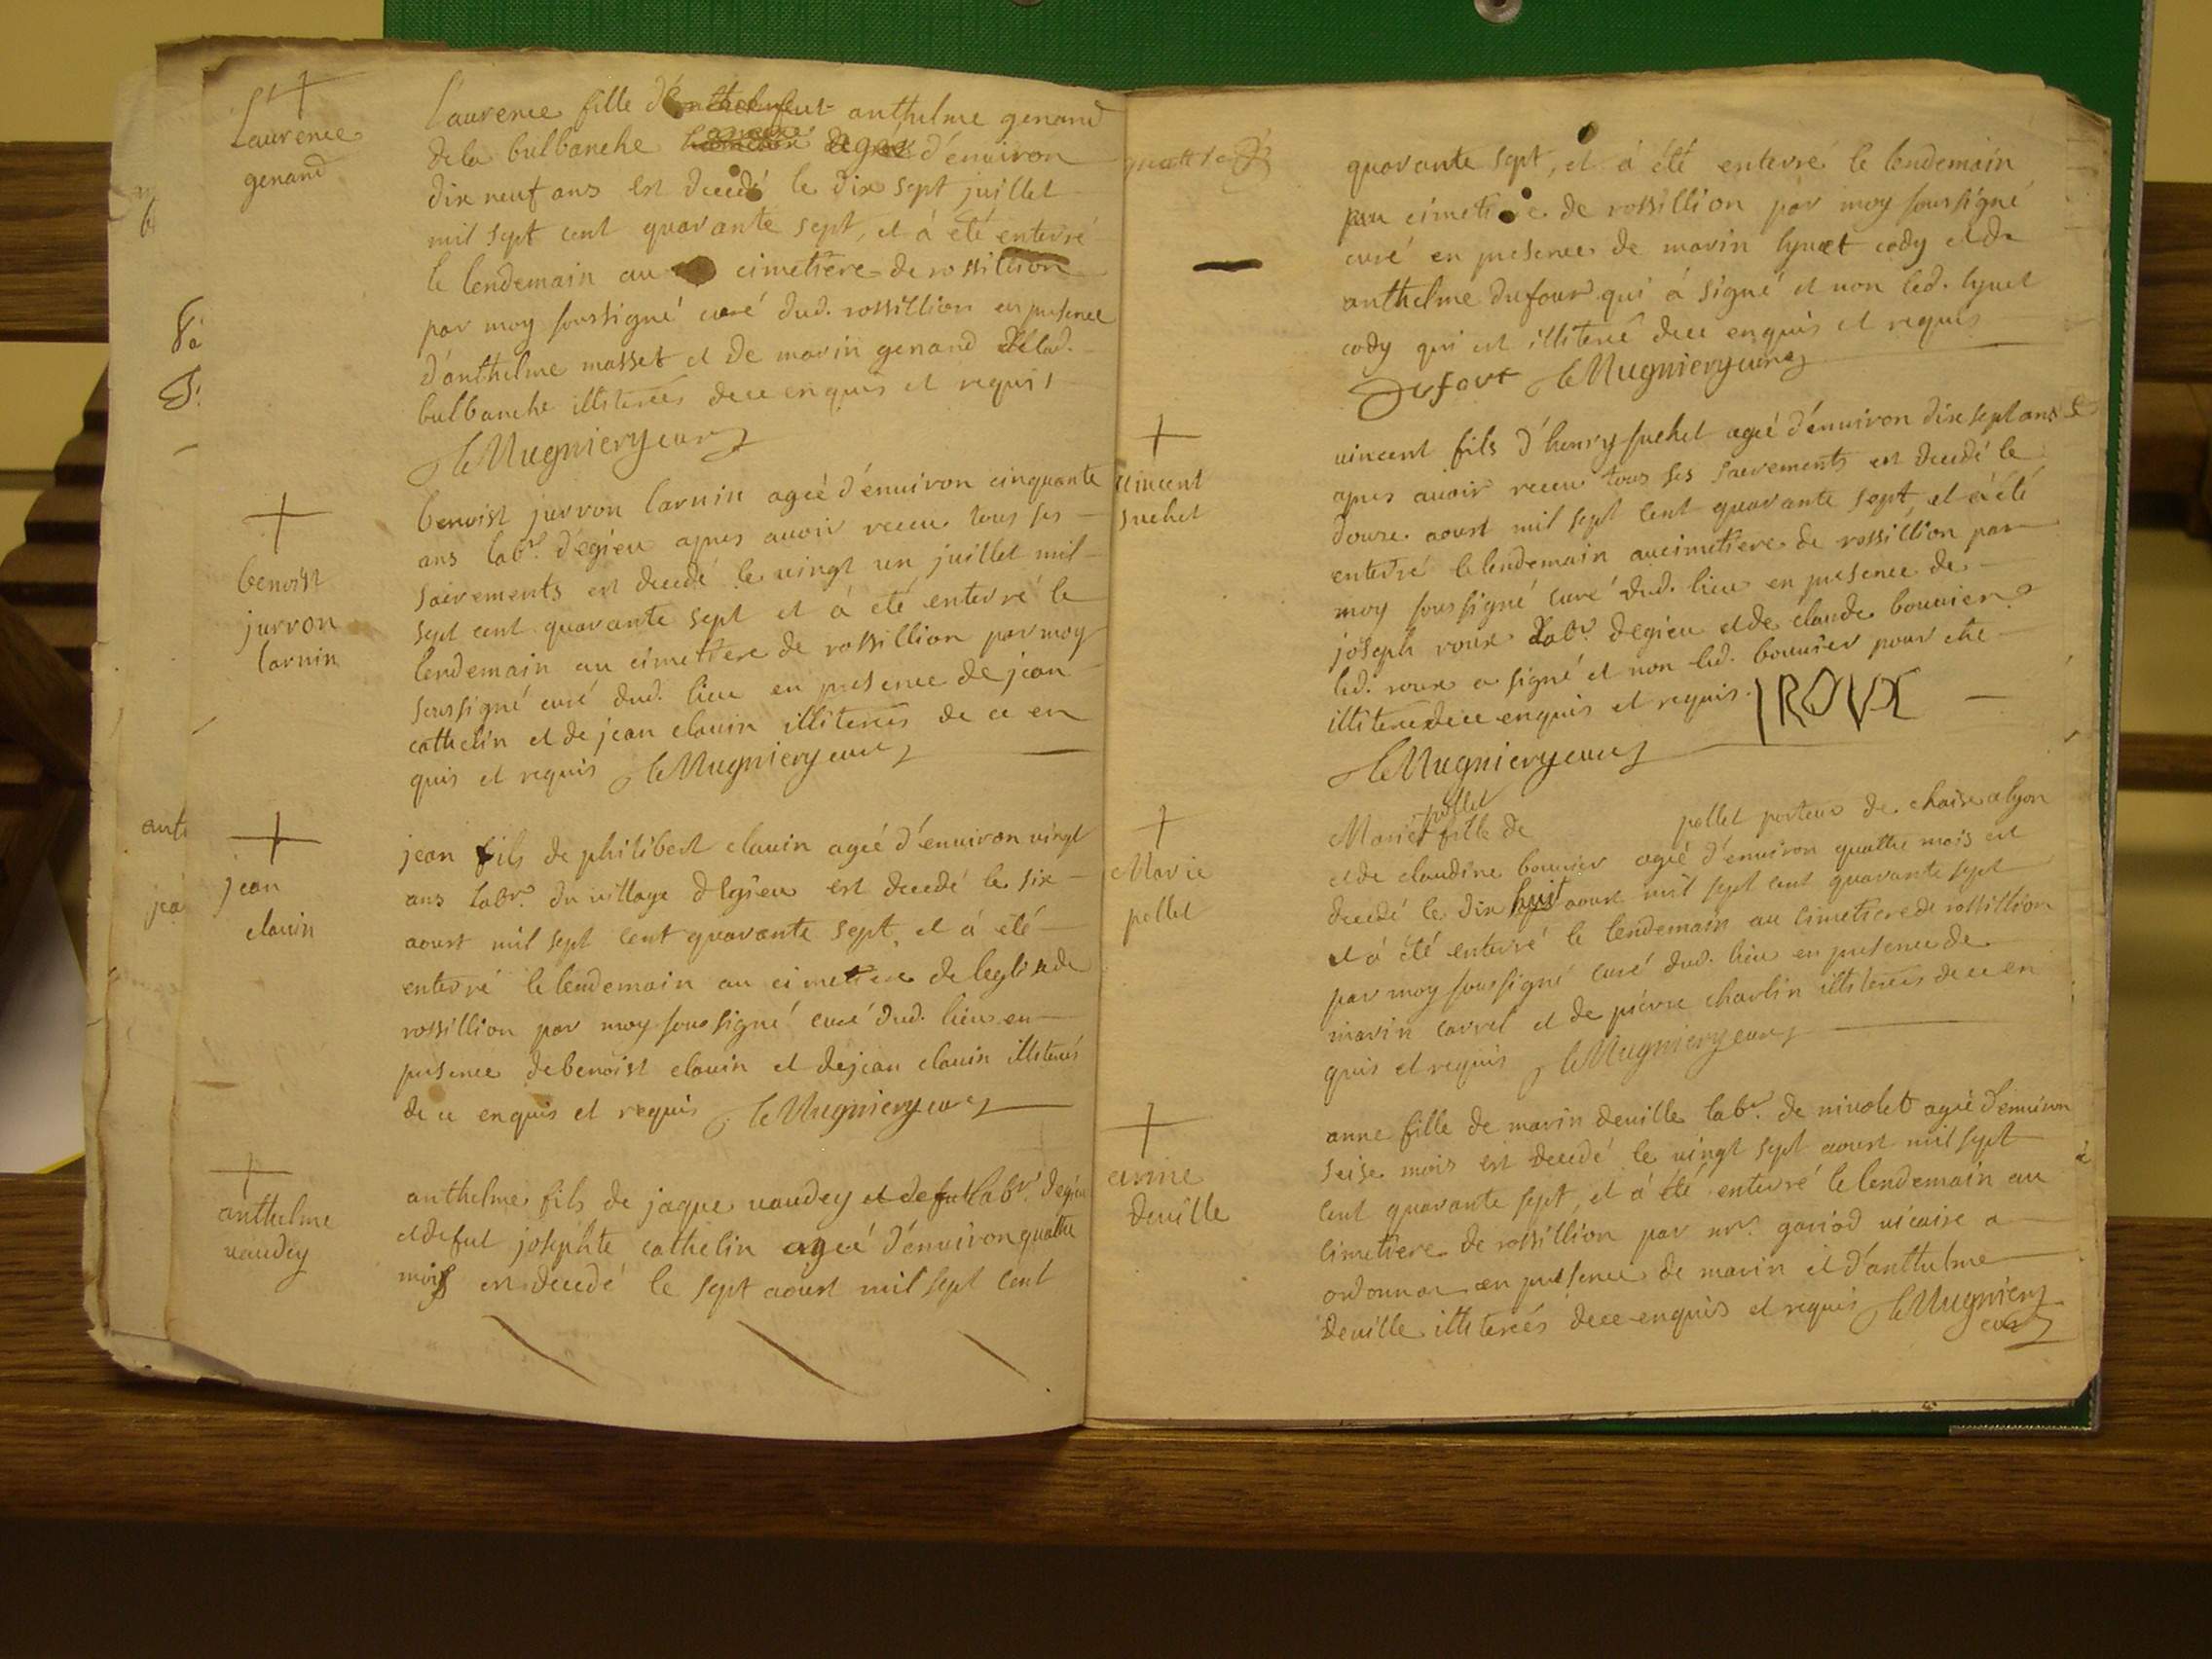 Laurence
genand
Laurence fille d' anthelme genand
de la bulbanche d'enuiron
dix neuf ans est decedé le dix sept juillet
mil sept cent quarante sept, et á eté enterré
le lendemain au cimetiere de rossillion
par moy soussigné curé dud. rossillion en presence
d'anthelme masset et de marin genand delad.
bulbanche illiterés dece enquis et requis
leMugniery curé
benoist
jurron
larnin
benoist jurron larnin ageé d'enuiron cinquante
ans labr. d'egieu apres auoir receu tous ses
sacrements est decedé le uingt un juillet mil
sept cent quarante sept et á eté enterré le
lendemain au cimetiere de rossillion par moy
soussigné curé dud. lieu en presence de jean
cathelin et de jean clauin illiterés de ce en
quis et requis leMugniery curé
jean
clauin
jean fils de philibert clauin ageé d'enuiron uingt
ans labr. du uillage d'Egieu est decedé le six
aoust mil sept cent quarante sept, et á eté
enterré le lendemain au cimetiere de leglise de
rossillion par moy soussigné curé dud. lieu en
presence de benoist clauin et de jean clauin illiterés
de ce enquis et requis leMugniery curé
anthelme
uaudey
anthelme fils de jaque uaudey et defut labr. degieu
et defut josephte cathelin ageé d'enuiron quattre
mois est decedé le sept aoust mil sept cent
quarante sept, et á été enterré le lendemain
au cimetiere de rossillion par moy soussigné
curé en presence de marin lynet cody et de
anthelme dufour qui á signé et non led. lynet
cody qui est illiteré dece enquis et requis
Dufour leMugniery curé
uincent
suchet
uincent fils d'henry suchet ageé d'enuiron dix sept ans
apres auoir receu tous ses sacrements est decedé le
douze aoust mil sept cent quarante sept, et á été
enterré le lendemain au cimetiere de rossillion par
moy soussigné curé dud. lieu en presence de
joseph roux labr. d'egieu et de claude bouuier
led. roux a signé et non led. bouuier pour etre
illiteré dece enquis et requis. I ROVX
leMugniery curé
Marie
pollet
pollet
Marie fille de pollet porteur de chaise a lyon
et de claudine bouuier ageé d'enuiron quattre mois est
decedé le dix huit aoust mil sept cent quarante sept
et á été enterré le lendemain au cimetiere de rossillion
par moy soussigné curé dud. lieu en presence de
marin carrel et de pierre charlin illiterés de ce en
quis et requis leMugniery curé
anne
deuille
anne fille de marin deuille labr. de niuolet ageé d'enuiron
seise mois est decedé le uingt sept aoust mil sept
cent quarante sept, et á été enterré le lendemain au
cimetiere de rossillion par mr. gariod uicaire a
ordonnaz en presence de marin et d'anthelme
deuille illiterés dece enquis et requis leMugniery
curé